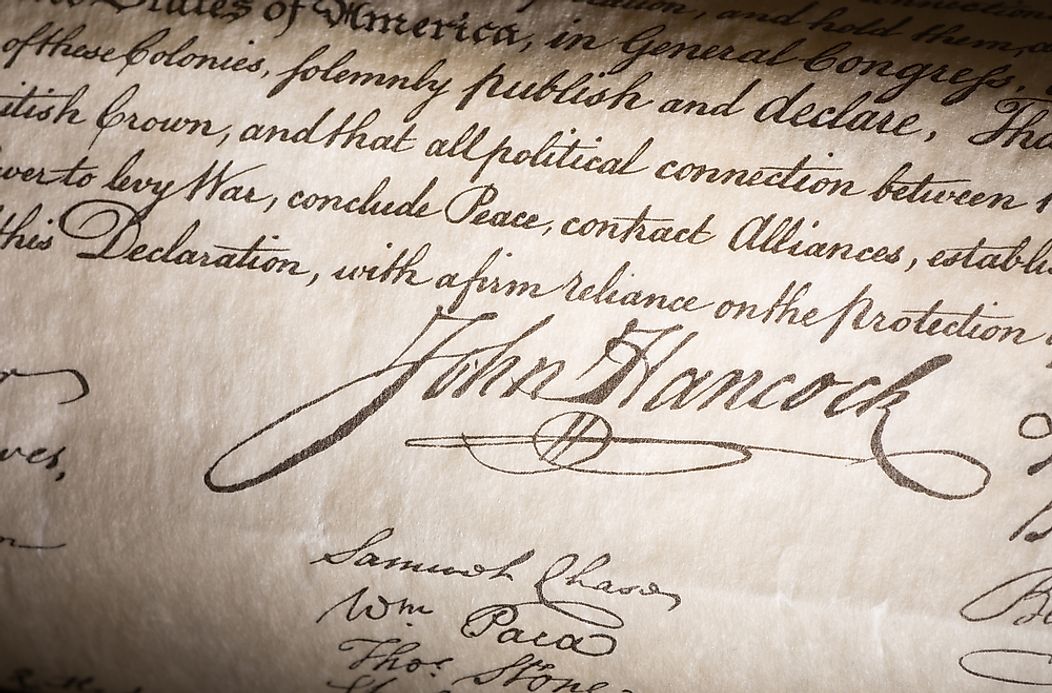 States of America, in General Congress,
of these Colonies, solemnly publish and declare, Tha
itish Crown, and that all political connection between
wer to levy War, conclude Peace, contract Alliances, establi
this Declaration, with a firm reliance on the Protection
John Hancock
Samuel Chase
Wm Paca
Thos. Stone